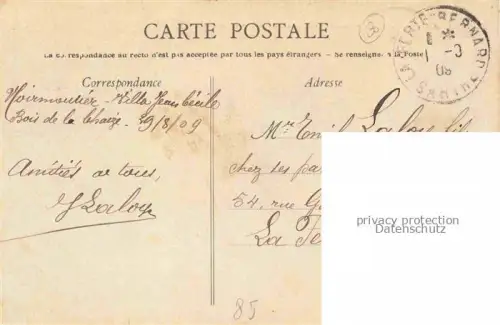 CARTE POSTALE
La correspondance au recto n'est pas acceptée par tous les pays étrangers. — Se renseigner à la Poste
Correspondance
Adresse
Noirmoutier Villa Jean Cécile
Bois de la Chaize. 29/8/09
Amitiés à tous,
J Laloy
Mr Emile Laloy fils
chez ses
54, rue G
La Fe
LA FERTÉ-BERNARD
SARTHE
09
85
privacy protection
Datenschutz